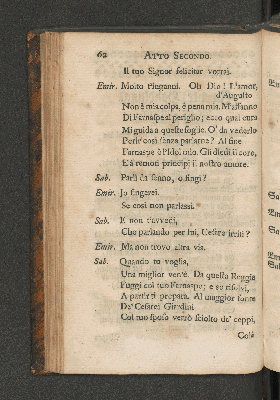 62 ATTO SECONDO.
Il tuo Signor felicitar vorrai.
Emir. Molto t'inganni. Oh Dio! L'amor,
d'Augusto
Non è mia colpa, è pena mia. M'affanno
Di Farnaspe al periglio; ecco qual cura
Mi guida a queste soglie. O' da vederlo
Perir così senza parlarne? Al fine
Farnaspe è l'Idol mio. Gli diedi il core,
E à remoti principj il nostro amore.
Sab. Parli da senno, o fingi?
Emir. Io fingerei,
Se così non parlassi.
Sab. E non t'avvedi,
Che parlando per lui, Cesare irriti?
Emir. Ma non trovo altra via.
Sab. Quando tu voglia,
Una miglior ven'è. Da questa Reggia
Fuggi col tuo Farnaspe; e se risolvi,
A partir ti prepara. Al maggior fonte
De' Cesarei Giardini
Col tuo sposo verrò sciolto da' ceppi,
Colà